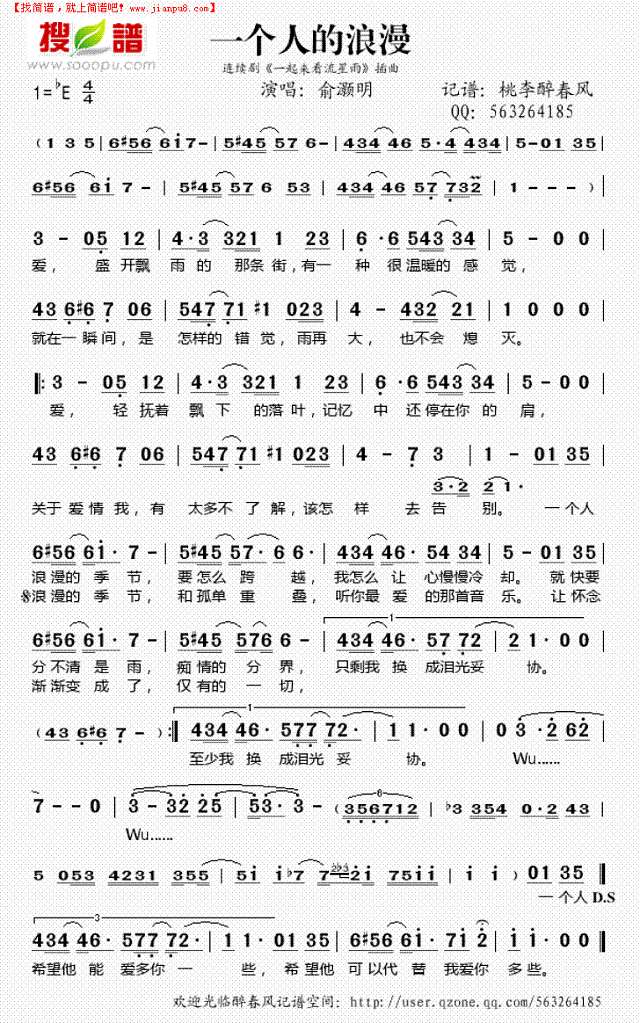 【找简谱，就上简谱吧！www.jianpu8.com】
搜谱
www.sooopu.com
一个人的浪漫
连续剧《一起来看流星雨》插曲
1=♭E 4/4
演唱：俞灏明
记谱：桃李醉春风
QQ：563264185
(1 3 5 | 6♯566 6i7 - | 5♯455 576 - | 4344 46 5·4 434 | 5-01 35 |
6♯56 6i 7 - | 5♯45 57 6 53 | 434 46 57 732 | 1 - - - )
3 - 05 12 | 4·3 321 1 23 | 6·6 543 34 | 5 - 0 0 |
爱， 盛开飘 雨的 那条街，有一 种 很温暖的 感 觉，
43 6♯6 7 06 | 547 71 ♯1 023 | 4 - 432 21 | 1 0 0 0 |
就在一瞬间，是 怎样的 错 觉，雨再 大， 也不会 熄 灭。
‖: 3 - 05 12 | 4·3 321 1 23 | 6·6 543 34 | 5 - 0 0 |
爱， 轻抚着 飘 下 的落叶，记忆 中 还停在你 的 肩，
43 6♯6 7 06 | 547 71 ♯1 023 | 4 - 7 3 | 1 - 01 35 |
3·2 2 1·
关于 爱情 我，有 太多不 了 解，该怎 样 去告 别。 一个人
6♯56 6i· 7 - | 5♯45 57· 6 6 - | 434 46· 54 34 | 5 - 01 35 |
浪漫的 季 节， 要怎么 跨 越， 我怎么 让 心慢慢冷 却。 就快要
浪漫的 季 节， 和孤单 重 叠， 听你最 爱 的那首音 乐。 让怀念
6♯56 6i· 7 - | 5♯45 576 6 - | 434 46· 57 72 | 2 1· 0 0 |
分不清 是 雨， 痴情的 分 界， 只剩我 换 成泪光妥 协。
渐渐变 成 了， 仅有的 一 切，
(43 6♯6 7 - ) :‖ 434 46· 577 72· | 1 1· 0 0 | 0 3·2 62 |
至少我 换 成泪光 妥 协。 Wu……
7 - - 0 | 3 - 32 25 | 53· 3 - (356712 | ♭3 354 0·2 43 |
Wu……
5 053 4231 355 | 5i i♭7 7 2i 75ii | i i ) 01 35 ‖
一个人 D.S
434 46· 577 72· | 1 1· 01 35 | 6♯56 66 71 2 | i i· 0 0 ‖
希望他 能 爱多你 一 些，希望他 可以代 替 我爱你 多些。
欢迎光临醉春风记谱空间：http://user.qzone.qq.com/563264185